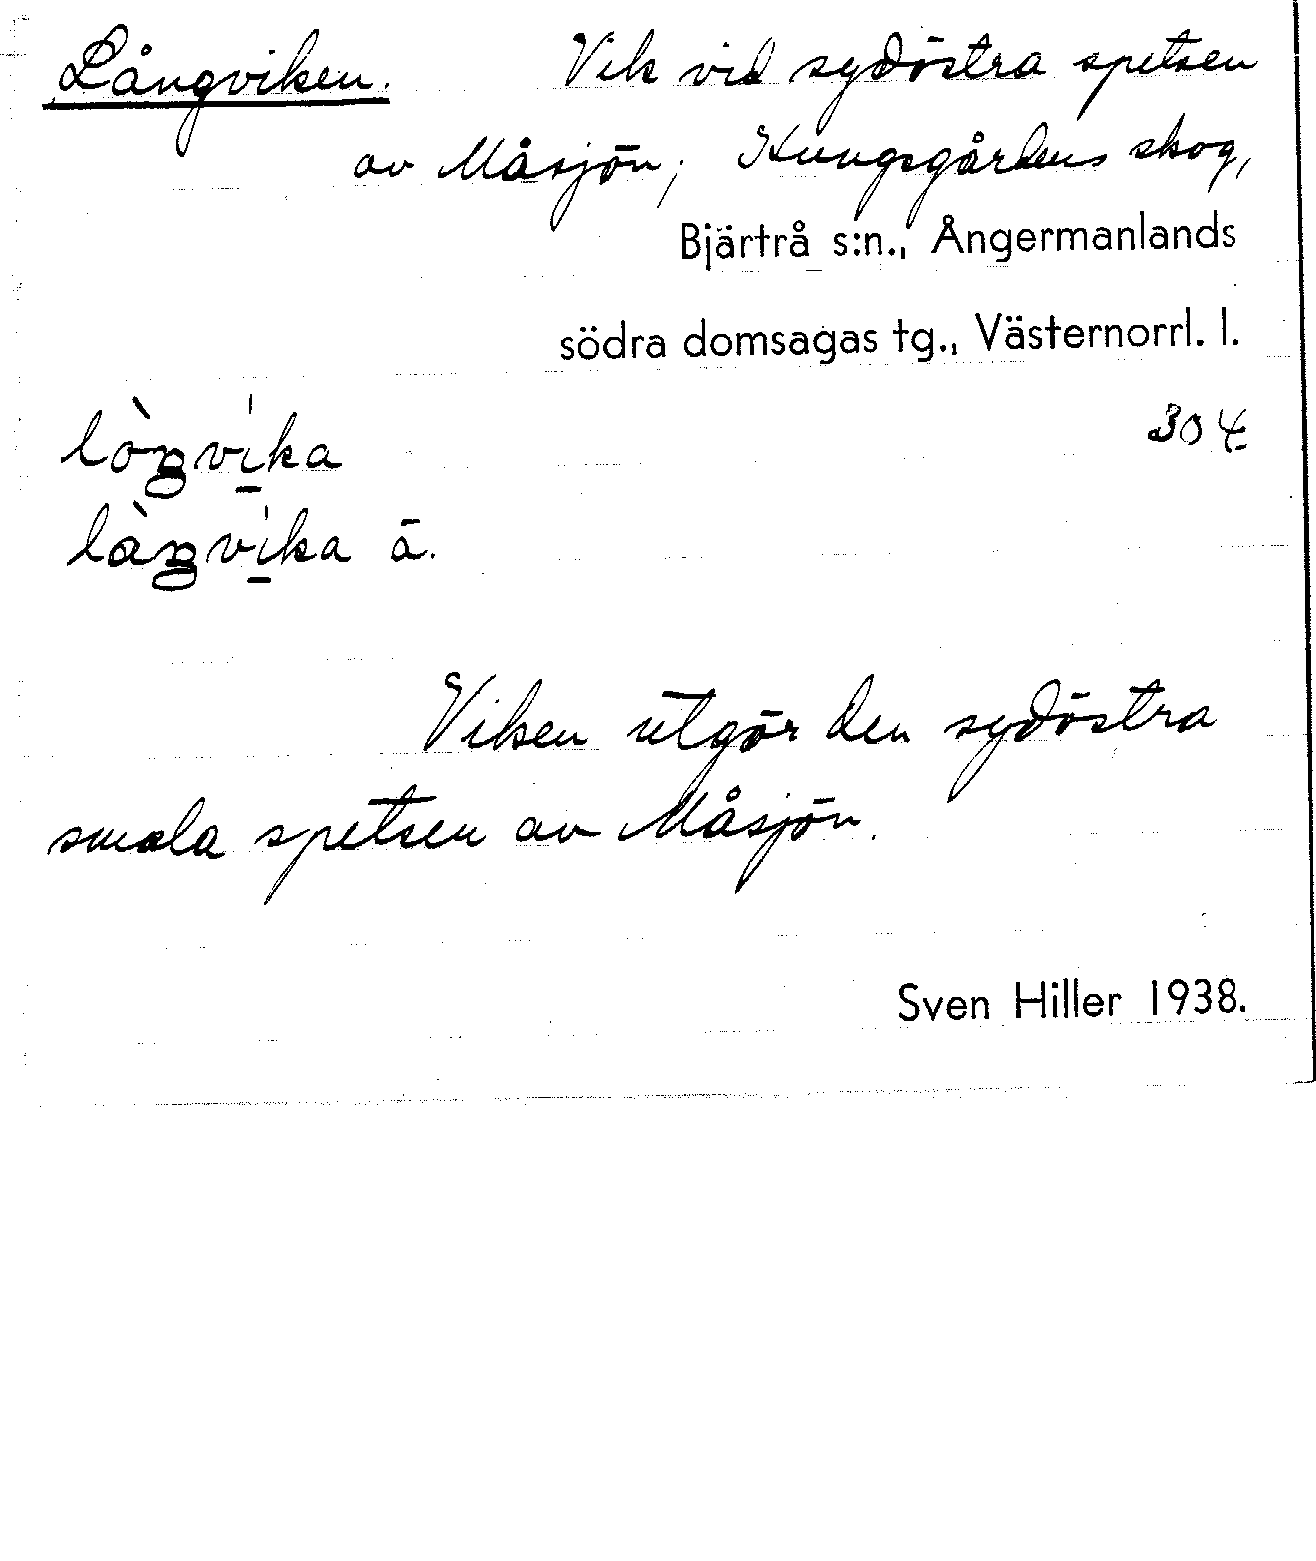 Långviken. Vik vid sydöstra spetsen
av Måsjön; Kungsgårdens skog,
Bjärtrå s:n., Ångermanlands
södra domsagas tg., Västernorrl. l.
lòŋvi̱ka 304
làŋvi̱ka ä.
Viken utgör den sydöstra
smala spetsen av Måsjön.
Sven Hiller 1938.